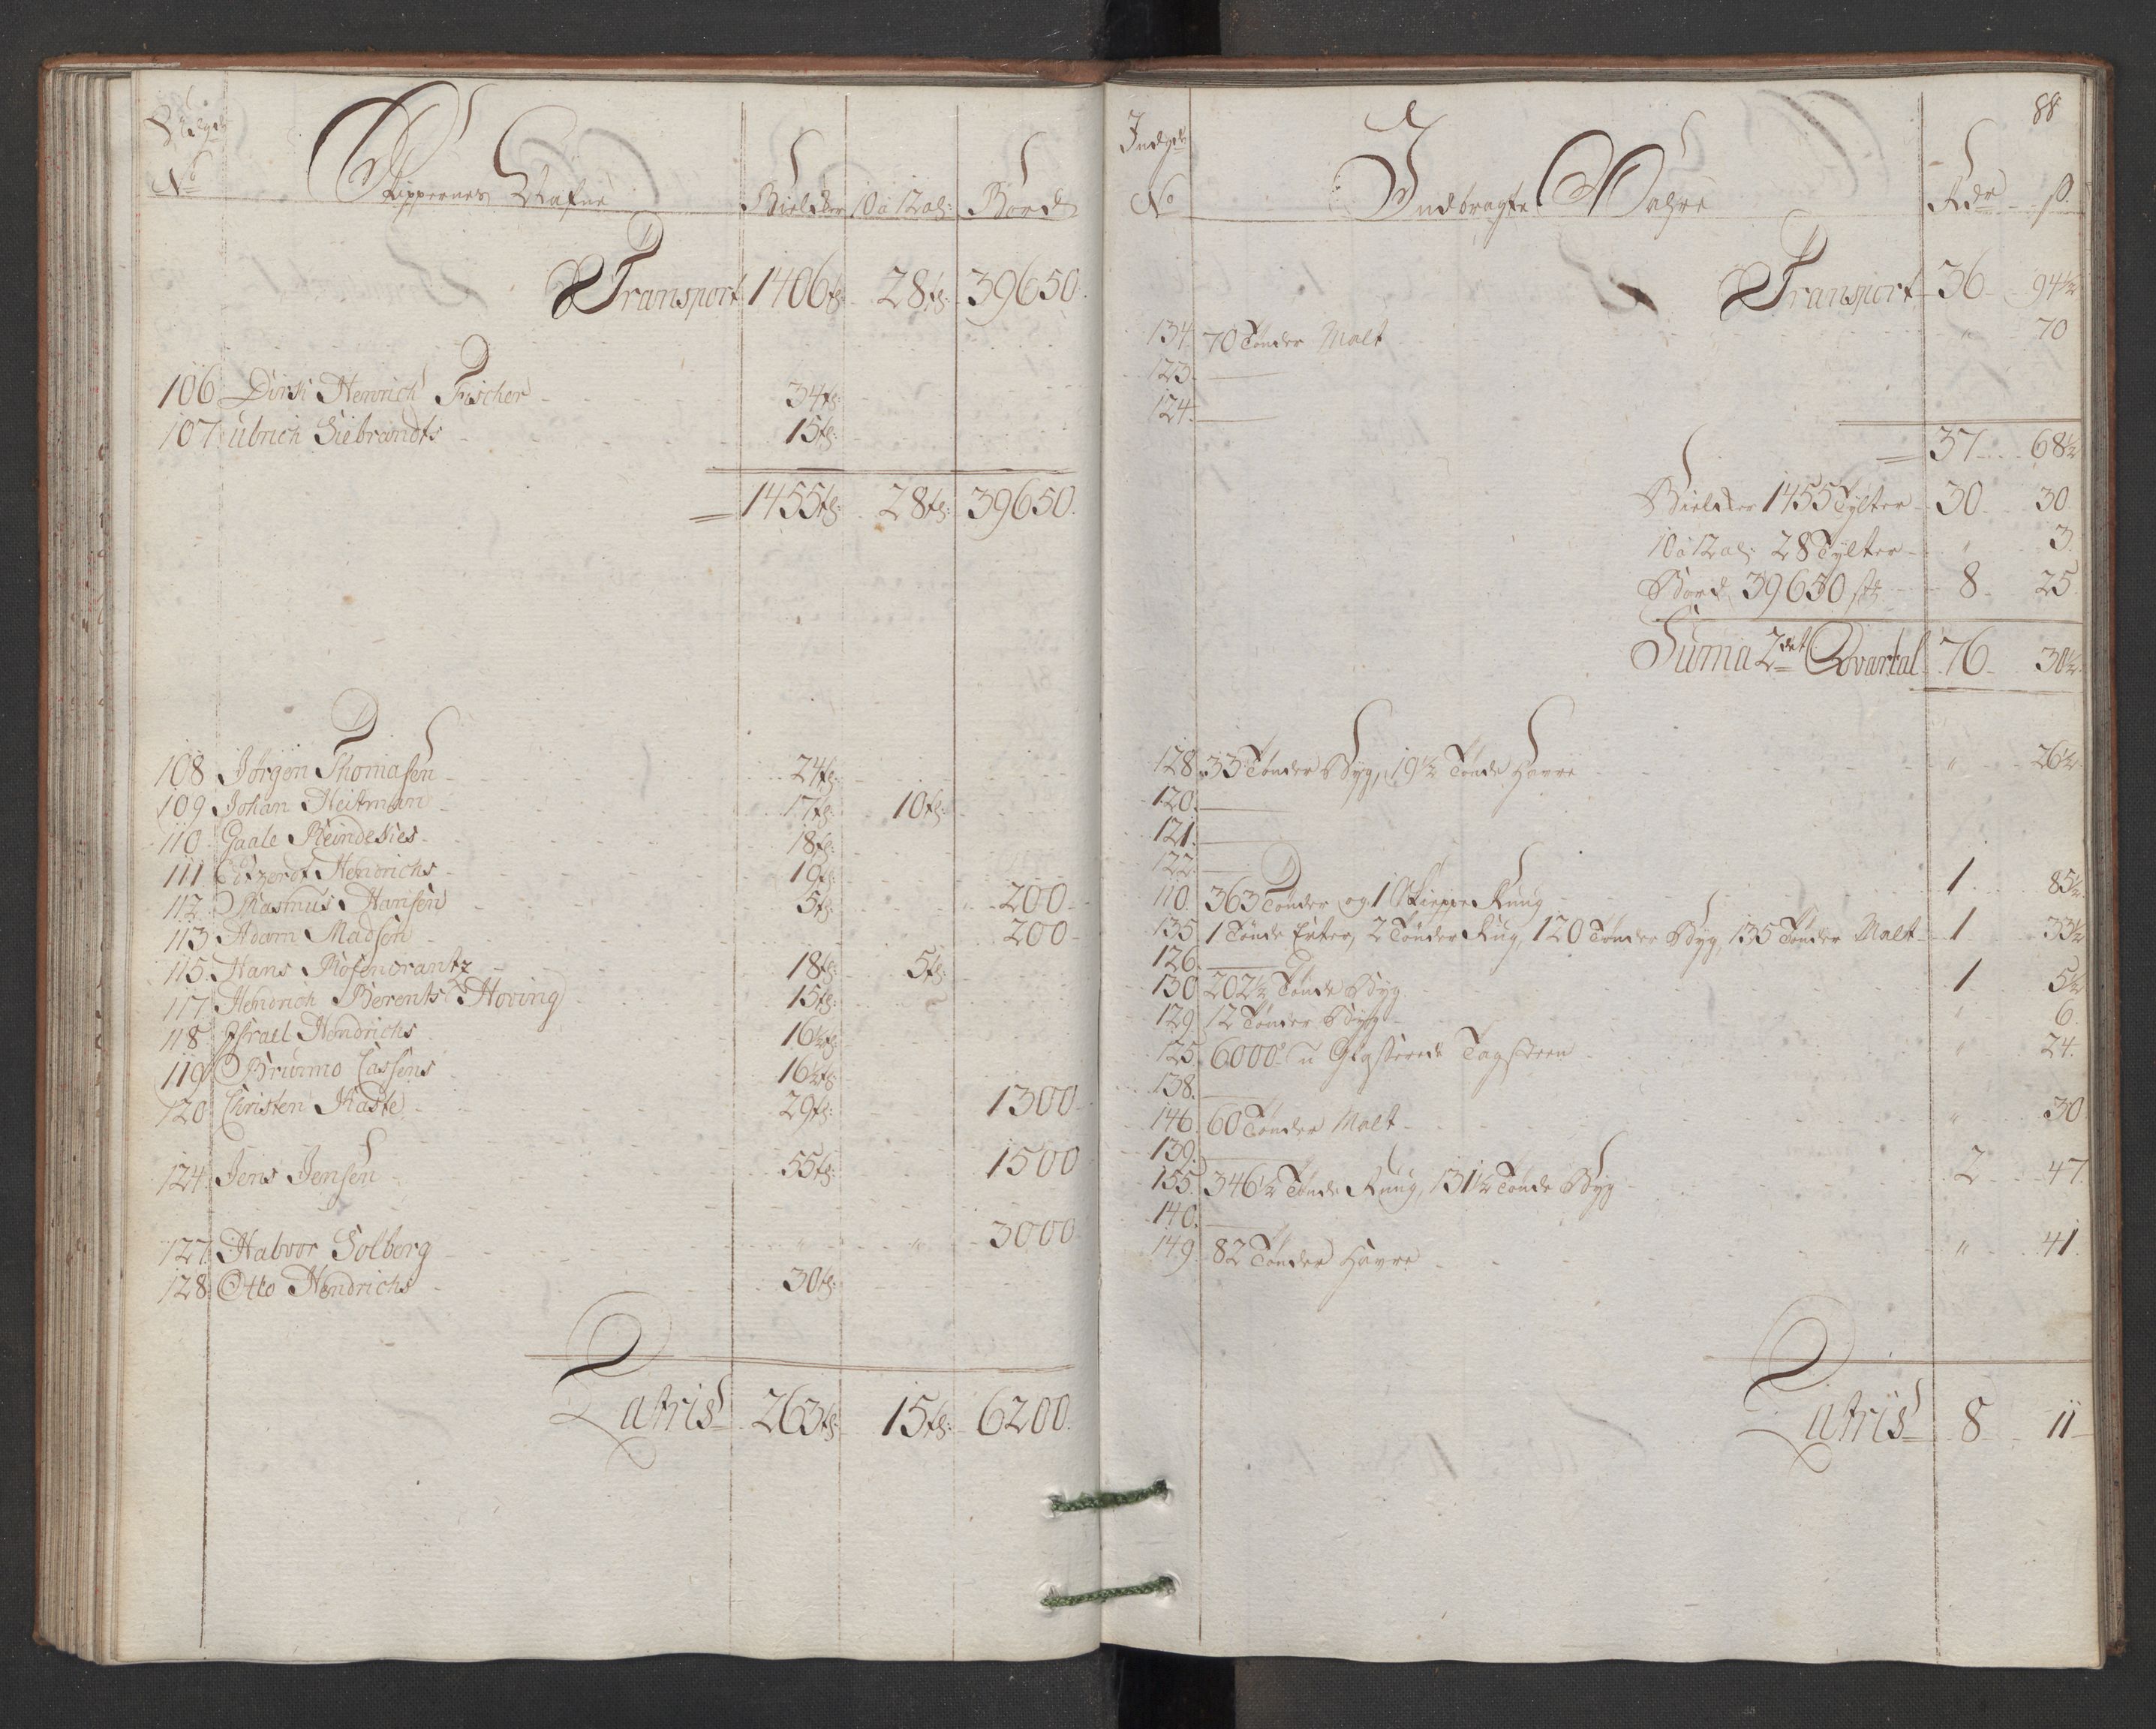 Udgde
No Skippernes Nafne Bielcker 10 a 12 al: Bord
Transport 1406 tl: 28 tl: 39650.
106 Dirk Henrich Fischer 34 tl:
107 Ulrich Siebrandts 15 tl:
= 1455 tl: 28 tl: 39650.
108 Jörgen Thomasen 24 tl:
109 Johan Heitman 17 tl: 10 tl:
110 Gaale Reinders 18 tl:
111 Hendrichs 19 tl:
112 Rasmus Hansen 5 tl: 200
113 Adam Madsen 200
115. Hans Rosencrantz 18 tl: 5 tl:
117 Hendrich Berents Hoving 15 tl:
118 Israel Hendrichs 16½ tl:
119 Bruuno Cassens 16½ tl:
120 Christen Kaste 29 tl: 1300
124. Jens Jensen 55 tl: 1500
127. Halvor Solberg " " 3000
128. Otto Hendrichs 30 tl:
Latris 263 tl: 15 tl: 6200.
88
Indgde
No Indbragte Wahre Rdr ß
Transport 36 94½
134 70 Tønder Malt " 70
123.
124.
= 37 68½
Bielcker 1455 Tylter 30 30
10 a 12 al: 28 Tylter " 3
Bord 39650 stk 8 25
Suma 2det Qvartal 76 30½
128. 33 Tønder Byg, 19½ Tønde Havre " 26½
120.
121.
122.
110. 363 Tønder og 1 Skieppe Rung 1 85½
135 1 Tønde Erter, 2 Tønder Rug, 120 Tønder Byg, 135 Tønder Malt 1 33½
126.
130 202½ Tønde Byg 1 5½
129 12 Tønder Byg " 6
125. 6000 u Glasserede Tagsteen " 24.
138.
146. 60 Tønder Malt " 30
139.
155. 346½ Tønde Rung, 131½ Tønde Byg 2 47
140.
149. 82 Tønder Havre " 41.
Latris 8 11